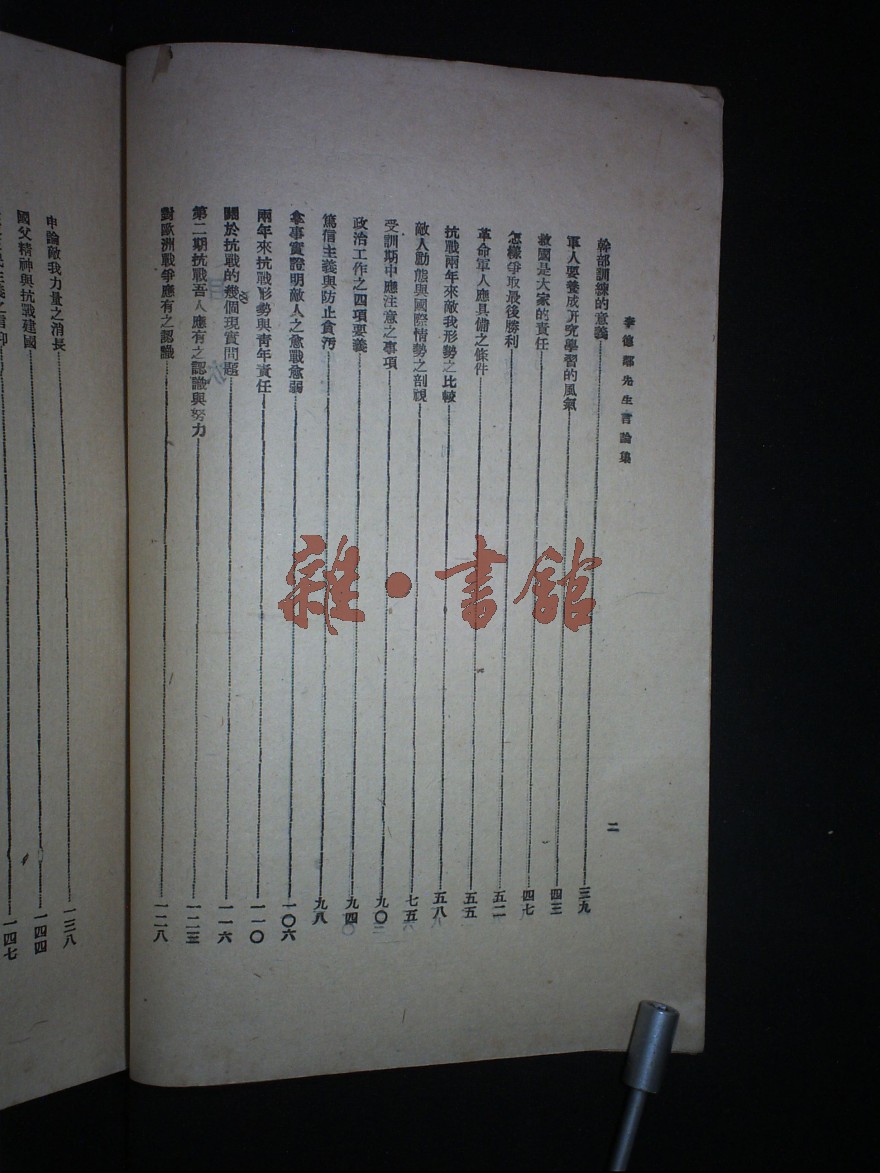 李德鄰先生言論集
二
幹部訓練的意義 三九
軍人要養成研究學習的風氣 四三
救國是大家的責任 四七
怎樣爭取最後勝利 五二
革命軍人應具備之條件 五五
抗戰兩年來敵我形勢之比較 五八
敵人動態與國際情勢之剖視 七五
受訓期中應注意之事項 九〇
政治工作之四項要義 九四
篤信主義與防止貪污 九八
拿事實證明敵人之愈戰愈弱 一〇六
兩年來抗戰形勢與青年責任 一一〇
關於抗戰的幾個現實問題 一一六
第二期抗戰吾人應有之認識與努力 一二三
對歐洲戰爭應有之認識 一二八
申論敵我力量之消長 一三八
國父精神與抗戰建國 一四四
一四七
雜·書館